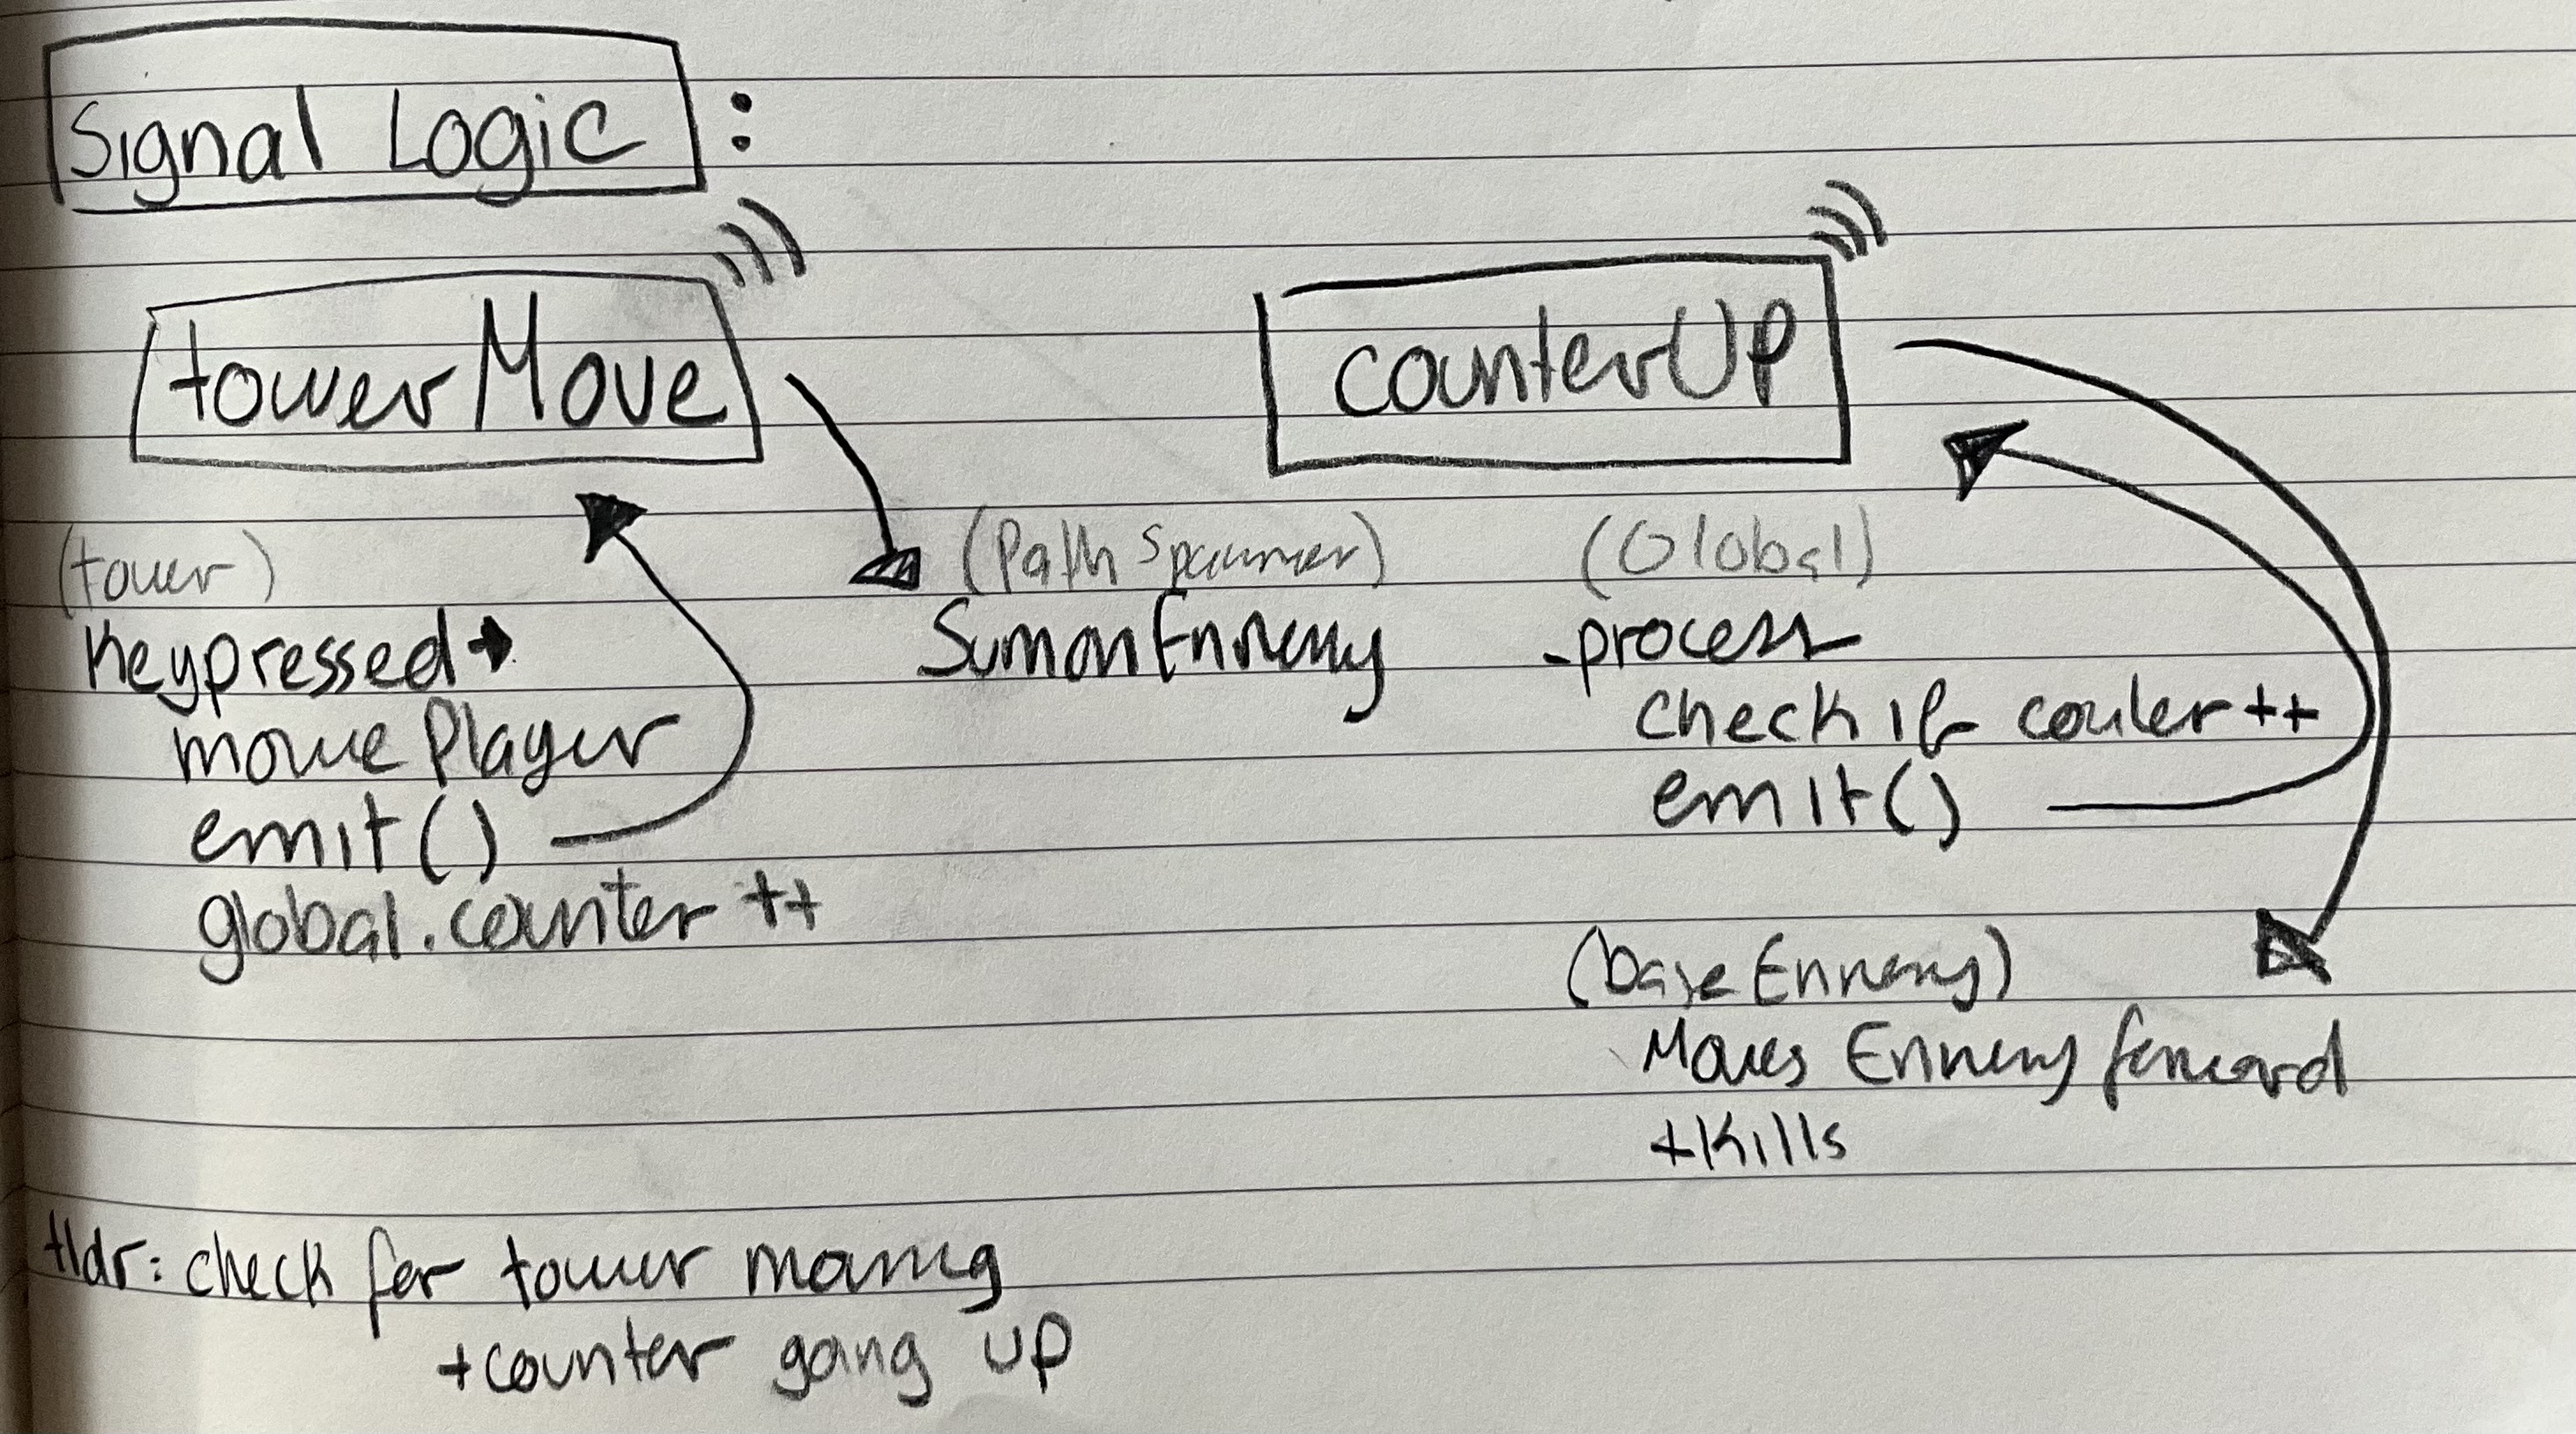 Signal Logic :
towerMove
counterUP
(tower)
Keypressed →
move Player
emit()
global.counter ++
(Path Spawner)
SumonEnnemy
(Global)
-process
check if couter ++
emit()
(base Ennemy)
Moves Ennemy forward
+Kills
tldr: check for tower moving
+counter going up